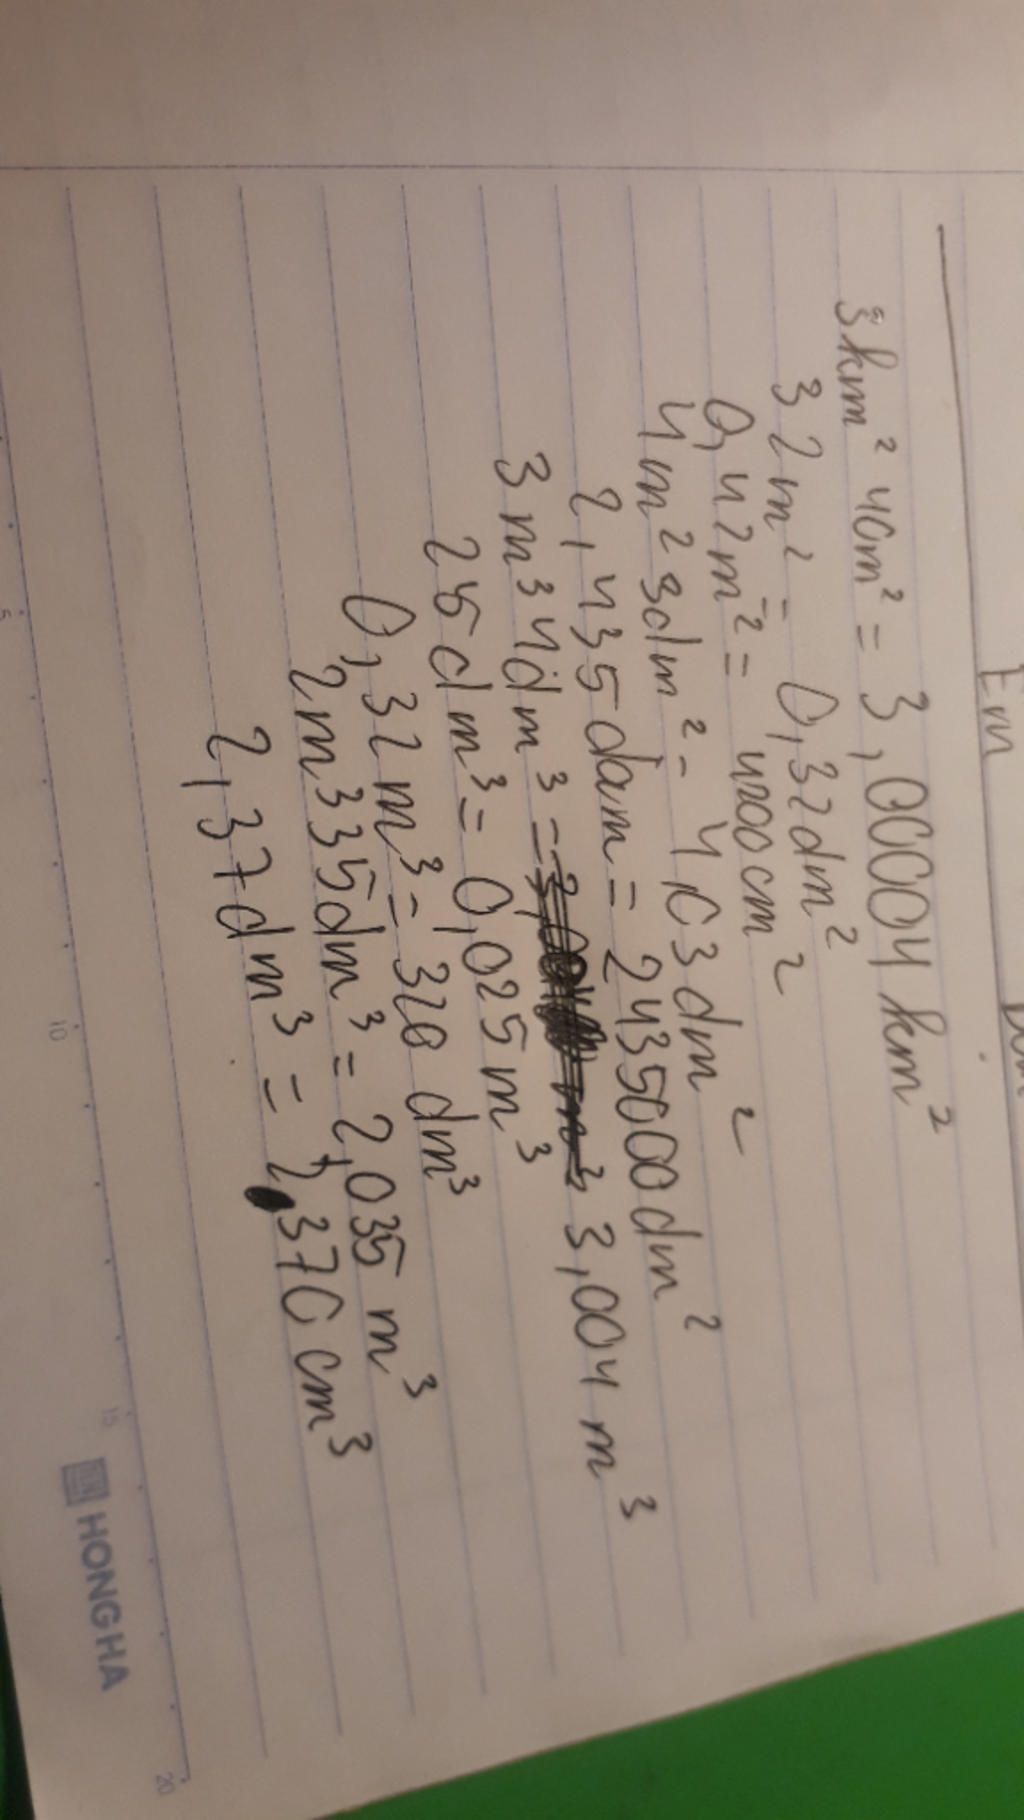 Em
3km² 40m² = 3,00004 km²
32m² = 0,32dm²
0,42m² = 4200cm²
4m² 3dm² = 4,03dm²
2,435dam = 2435000dm²
3m³ 4dm³ = 3,004 m³
25dm³ = 0,025m³
0,32m³ = 320 dm³
2m³ 35dm³ = 2,035 m³
2,37dm³ = 2,370cm³
5 10 15 20
HONG HA